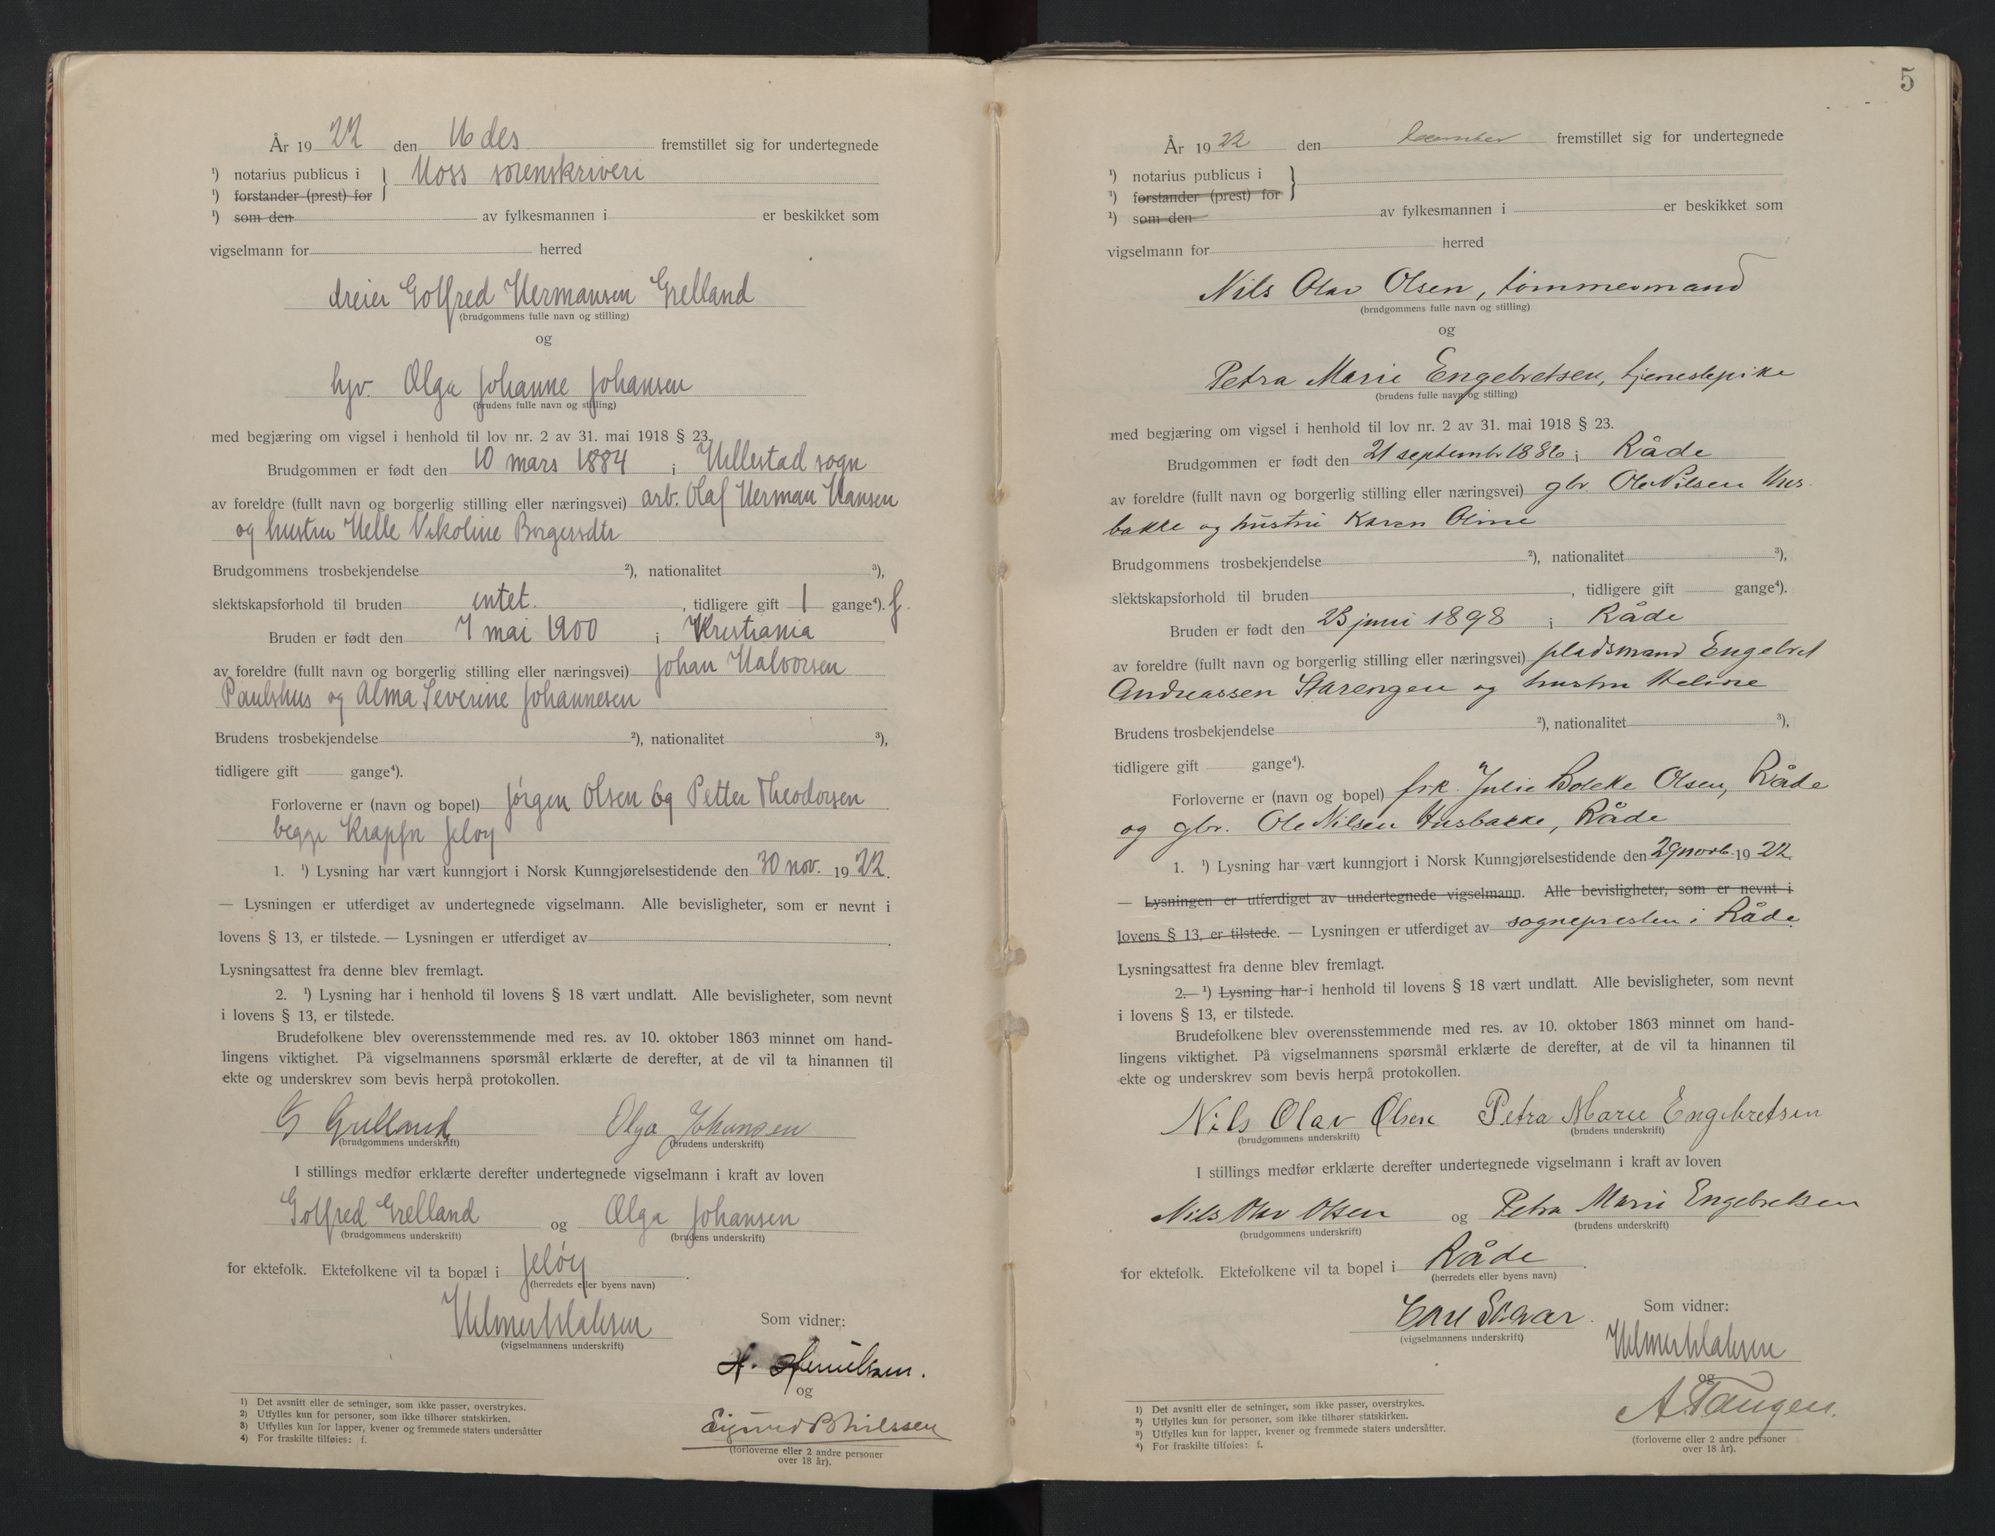 År 1922 den 16 des fremstillet sig for undertegnede
¹) notarius publicus i } Moss sorenskriveri
¹) forstander (prest) for
¹) som den av fylkesmannen i er beskikket som
vigselmann for herred
dreier Golfred Hermansen Grelland
(brudgommens fulle navn og stilling)
og
hjv. Olga Johanne Johansen
(brudens fulle navn og stilling)
med begjæring om vigsel i henhold til lov nr. 2 av 31. mai 1918 § 23.
Brudgommen er født den 10 mars 1884 i Hillestad sogn
av foreldre (fullt navn og borgerlig stilling eller næringsvei) arb. Olaf Herman Hansen
og hustru Helle Nikoline Borgersdtr
Brudgommens trosbekjendelse ²), nationalitet ³),
slektskapsforhold til bruden intet. , tidligere gift 1 gange⁴). f.
Bruden er født den 7 mai 1900 i Kristiania
av foreldre (fullt navn og borgerlig stilling eller næringsvei) Johan Halvorsen
Paulshus og Alma Severine Johannesen
Brudens trosbekjendelse ²), nationalitet ³),
tidligere gift gange⁴).
Forloverne er (navn og bopel) Jørgen Olsen og Petter Theodorsen
begge Krapfn Jeløy
1. ¹) Lysning har vært kunngjort i Norsk Kunngjørelsestidende den 30 nov. 1922.
— Lysningen er utferdiget av undertegnede vigselmann. Alle bevisligheter, som er nevnt i
lovens § 13, er tilstede. — Lysningen er utferdiget av .
Lysningsattest fra denne blev fremlagt.
2. ¹) Lysning har i henhold til lovens § 18 vært undlatt. Alle bevisligheter, som nevnt
i lovens § 13, er tilstede.
Brudefolkene blev overensstemmende med res. av 10. oktober 1863 minnet om hand-
lingens viktighet. På vigselmannens spørsmål erklærte de derefter, at de vil ta hinannen til
ekte og underskrev som bevis herpå protokollen.
G Grelland Olga Johansen
(brudgommens underskrift) (brudens underskrift)
I stillings medfør erklærte derefter undertegnede vigselmann i kraft av loven
Golfred Grelland og Olga Johansen
(brudgommens underskrift) (brudens underskrift)
for ektefolk. Ektefolkene vil ta bopæl i Jeløy .
(herredets eller byens navn)
Som vidner:
(vigselmannens underskrift)
og
Sigurd B Nilssen
(forloverne eller 2 andre personer
over 18 år).
1) Det avsnitt eller de setninger, som ikke passer, overstrykes.
2) Utfylles kun for personer, som ikke tilhører statskirken.
3) Utfylles kun for lapper, kvener og fremmede staters undersåtter
4) For fraskilte tilføies: f.
5
År 1922 den december fremstillet sig for undertegnede
¹) notarius publicus i }
¹) forstander (prest) for
¹) som den av fylkesmannen i er beskikket som
vigselmann for herred
Nils Olav Olsen, tømmermand
(brudgommens fulle navn og stilling)
og
Petra Marie Engebretsen, tjenestepike
(brudens fulle navn og stilling)
med begjæring om vigsel i henhold til lov nr. 2 av 31. mai 1918 § 23.
Brudgommen er født den 21 septembr 1886 i Råde
av foreldre (fullt navn og borgerlig stilling eller næringsvei) gbr. Ole Nilsen Hus-
bakke og hustru Karen Oline
Brudgommens trosbekjendelse ²), nationalitet ³),
slektskapsforhold til bruden , tidligere gift gange⁴).
Bruden er født den 23 juni 1898 i Råde
av foreldre (fullt navn og borgerlig stilling eller næringsvei) pladsmand Engebret
Andreassen Starengen og hustru Heline
Brudens trosbekjendelse ²), nationalitet ³),
tidligere gift gange⁴).
Forloverne er (navn og bopel) frk. Julie Bolette Olsen, Råde
og gbr. Ole Nilsen Husbakke, Råde
1. ¹) Lysning har vært kunngjort i Norsk Kunngjørelsestidende den 29 novb. 1922.
— Lysningen er utferdiget av undertegnede vigselmann. Alle bevisligheter, som er nevnt i
lovens § 13, er tilstede. — Lysningen er utferdiget av sognepresten i Råde.
Lysningsattest fra denne blev fremlagt.
2. ¹) Lysning har i henhold til lovens § 18 vært undlatt. Alle bevisligheter, som nevnt
i lovens § 13, er tilstede.
Brudefolkene blev overensstemmende med res. av 10. oktober 1863 minnet om hand-
lingens viktighet. På vigselmannens spørsmål erklærte de derefter, at de vil ta hinannen til
ekte og underskrev som bevis herpå protokollen.
Nils Olav Olsen Petra Marie Engebretsen
(brudgommens underskrift) (brudens underskrift)
I stillings medfør erklærte derefter undertegnede vigselmann i kraft av loven
Nils Olav Olsen og Petra Marie Engebretsen
(brudgommens underskrift) (brudens underskrift)
for ektefolk. Ektefolkene vil ta bopel i Råde .
(herredets eller byens navn)
Som vidner:
Carl
(vigselmannens underskrift)
og
A Haugen.
(forloverne eller 2 andre personer
over 18 år).
1) Det avsnitt eller de setninger, som ikke passer, overstrykes.
2) Utfylles kun for personer, som ikke tilhører statskirken.
3) Utfylles kun for lapper, kvener og fremmede staters undersåtter.
4) For fraskilte tilføies: f.